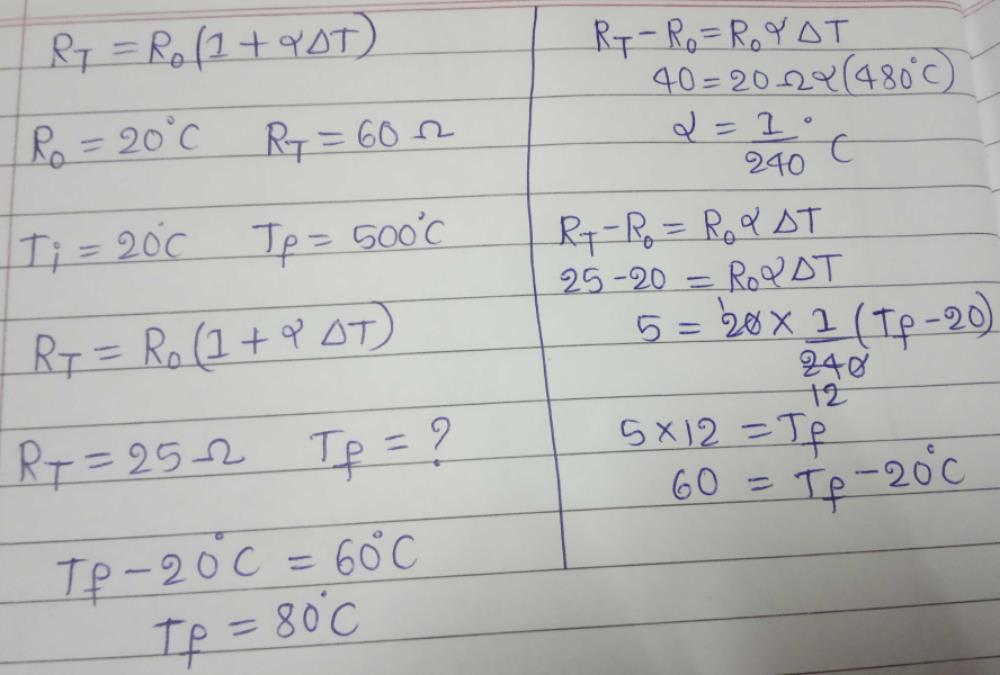 R_T = R_0(1 + αΔT)
R_0 = 20°C R_T = 60 Ω
T_i = 20°C T_f = 500°C
R_T = R_0(1 + αΔT)
R_T = 25 Ω T_f = ?
T_f - 20°C = 60°C
T_f = 80°C
R_T - R_0 = R_0 α ΔT
40 = 20 Ω α (480°C)
α = 1/240 °C
R_T - R_0 = R_0 α ΔT
25 - 20 = R_0 α ΔT
5 = 20 × 1/240 (T_f - 20)
1
12
5 × 12 = T_f
60 = T_f - 20°C